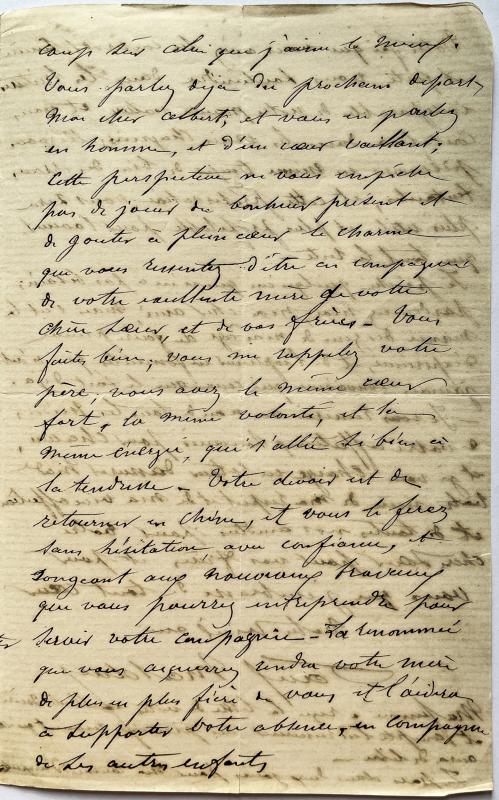 coup sûr celui que j'aime le mieux.
Vous parlez déjà du prochain départ,
Mon cher Albert, et vous en parlez
en homme, et d'un cœur vaillant;
cette perspective ne vous empêche
pas de jouir du bonheur présent et
de goûter à plein cœur le charme
que vous ressentez d'être en compagnie
de votre excellente mère de votre
chère sœur, et de vos frères - Vous
faites bien; vous me rappelez votre
père, vous avez le même cœur
fort, la même volonté, et la
même énergie, qui s'allie si bien à
la tendresse - Votre devoir est de
retourner en Chine, et vous le ferez
sans hésitation, avec confiance, et
songeant aux nouveaux travaux
que vous pourrez entreprendre pour
servir votre compagnie - La renommée
que vous acquerrez rendra votre mère
de plus en plus fière de vous et l'aidera
à supporter votre absence, en compagnie
de ses autres enfants